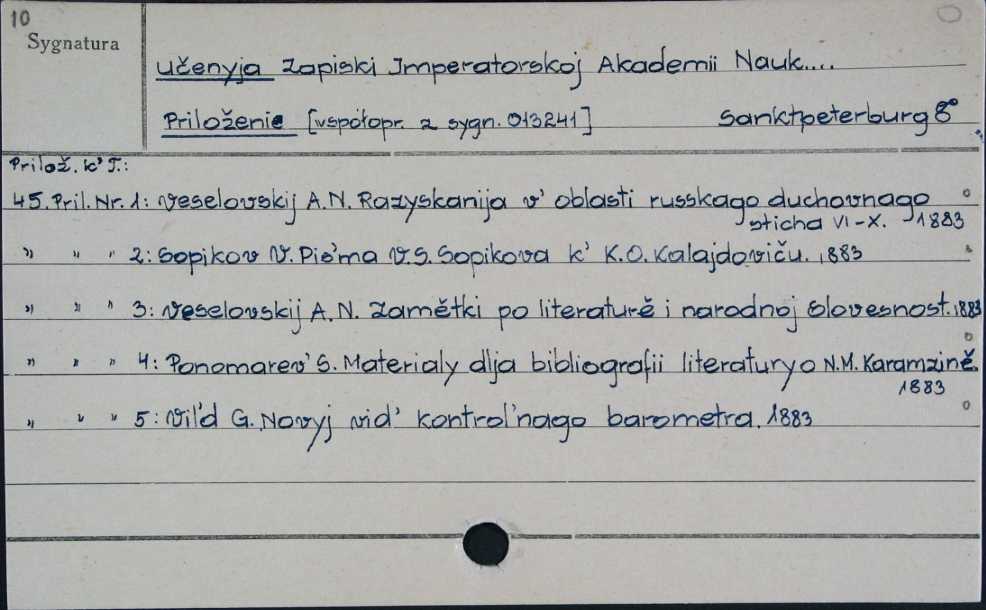 10
Sygnatura
Učenyja Zapiski Imperatorskoj Akademii Nauk....
Priloženie [współopr. z sygn. 013241] Sanktpeterburg 8°
Prilož. k' T.:
45. Pril. Nr. 1: Veselovskij A.N. Razyskanija v' oblasti russkago duchovnago
sticha VI-X. 1883
" " " 2: Sopikov V. Pis'ma V.S. Sopikova k' K.O. Kalajdoviču. 1883
" " " 3: Veselovskij A.N. Zamětki po literaturě i narodnoj slovesnost. 1883
" " " 4: Ponomarev' S. Materialy dlja bibliografii literatury o N.M. Karamzině.
1883
" " " 5: Vil'd G. Novyj vid' kontrol'nago barometra. 1883